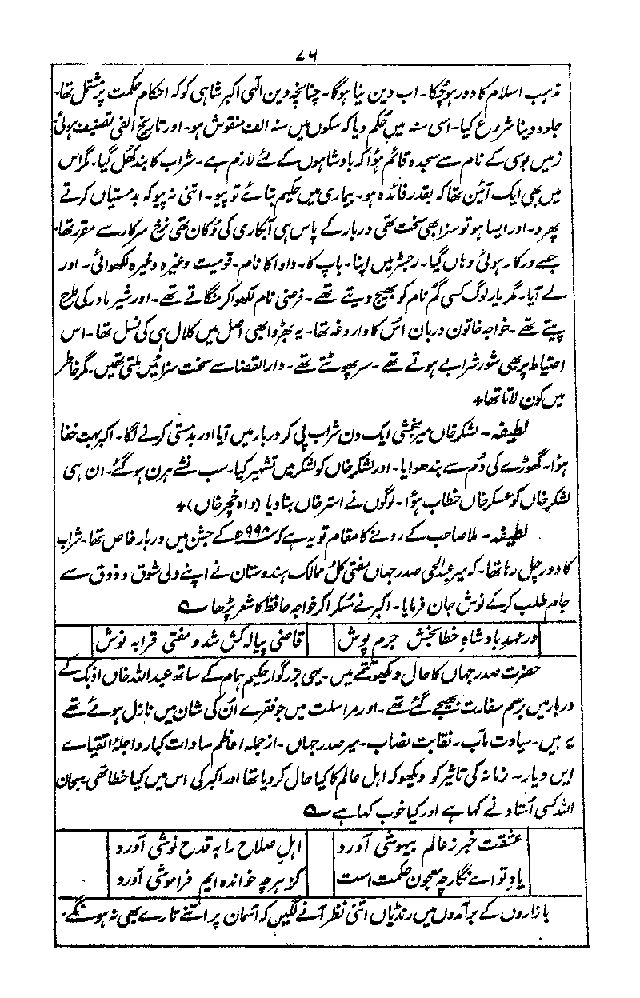 ۷۶
مذہب اسلام کا دور ہو چکا۔ اب دین نیا ہوگا۔ چنانچہ دین آلٰہی اکبر شاہی کو کہ احکام حکمت پر مشتمل تھا۔
جلوہ دینا شروع کیا۔ اسی سنہ میں حکم دیا کہ سکوں میں سنہ الف منقوش ہو۔ اور تاریخ الفی تصنیف ہوئی
زمیں بوسی کے نام سے سجدہ قائم ہوا کہ بادشاہوں کے لئے لازم ہے۔ شراب کا بند کھل گیا۔ مگر اس
میں بھی ایک آئین تھا کہ بقدر فائدہ ہو۔ بیماری میں حکیم بتائے تو پیو۔ اتنی نہ پیو کہ بدمستیاں کرتے
پھرو۔ اور ایسا ہو تو سزا بھی سخت تھی دربار کے پاس ہی آبکاری کی دُکان تھی نرخ سرکار سے مقرر تھا۔
جسے درکار ہوئی وہاں گیا۔ رجسٹر میں اپنا۔ باپ کا۔ دادا کا نام۔ قومیت وغیرہ وغیرہ لکھوائی۔ اور
لے آیا۔ مگر یار لوگ کسی گم نام کو بھیج دیتے تھے۔ فرضی نام لکھوا کر منگاتے تھے۔ اور شیر مادر کی طرح
پیتے تھے۔ خواجہ خاتون دربان اس کا داروغہ تھا۔ یہ بھڑوا بھی اصل میں کلال ہی کی نسل تھا۔ اس
احتیاط پر بھی شور شرابے ہوتے تھے۔ سر پھوٹتے تھے۔ دارالقضا سے سخت سزائیں ملتی تھیں۔ مگر خاطر
میں کون لاتا تھا +
لطیفہ۔ لشکر خاں میر بخشی ایک دن شراب پی کر دربار میں آیا اور بدمستی کرنے لگا۔ اکبر بہت خفا
ہوا۔ گھوڑے کی دُم سے بندھوایا۔ اور لشکر خاں کو لشکر میں تشہیر کیا۔ سب نشے ہرن ہو گئے۔ ان ہی
لشکر خاں کو عسکر خاں خطاب ہوا۔ لوگوں نے استر خاں بنا دیا (واہ خچر خاں) +
لطیفہ۔ ملا صاحب کے رونے کا مقام تو یہ ہے کہ ۹۹۸ھ کے جشن میں دربار خاص تھا۔ شراب
کا دور چل رہا تھا۔ کہ میر عبدالحی صدر جہاں مفتی کل ممالک ہندوستان نے اپنے دلی شوق و ذوق سے
جام طلب کر کے نوش جان فرمایا۔ اکبر نے مسکرا کر خواجہ حافظ کا شعر پڑھا ؎
در عہد بادشاہ خطا بخش جرم پوش قاضی پیالہ کش شد و مفتی قرابہ نوش
حضرت صدر جہاں کا حال دیکھو تتمے میں۔ یہی بزرگوار حکیم ہمام کے ساتھ عبداللہ خاں اذبک کے
دربار میں برسم سفارت بھیجے گئے تھے۔ اور مراسلت میں جو فقرے اُن کی شان میں نازل ہوئے تھے
یہ ہیں۔ سیادت مآب۔ نقابت نصاب۔ میر صدر جہاں۔ از جملہ اعاظم سادات کبار و اجلۂ اتقیائے
ایں دیار۔ زمانہ کی تاثیر کو دیکھو کہ اہل عالم کا کیا حال کر دیا تھا اور اکبر کی اس میں کیا خطا تھی سبحان
اللہ کسی اُستاد نے کہا ہے اور کیا خوب کہا ہے ؎
عشقت خبر ز عالم بیہوشی آورد اہل صلاح را بہ قدح نوشی آورد
یاد تو اے نگار چہ معجون حکمت است کز ہرچہ خواندہ ایم فراموشی آورد
بازاروں کے برآمدوں میں رنڈیاں اتنی نظر آنے لگیں کہ آسمان پر اتنے تارے بھی نہ ہونگے۔